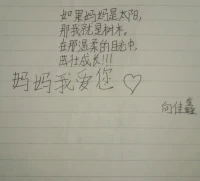 如果妈妈是太阳,
那我就是树木,
在那温柔的目光中,
茁壮成长!!!
妈妈我爱您♡
向佳鑫